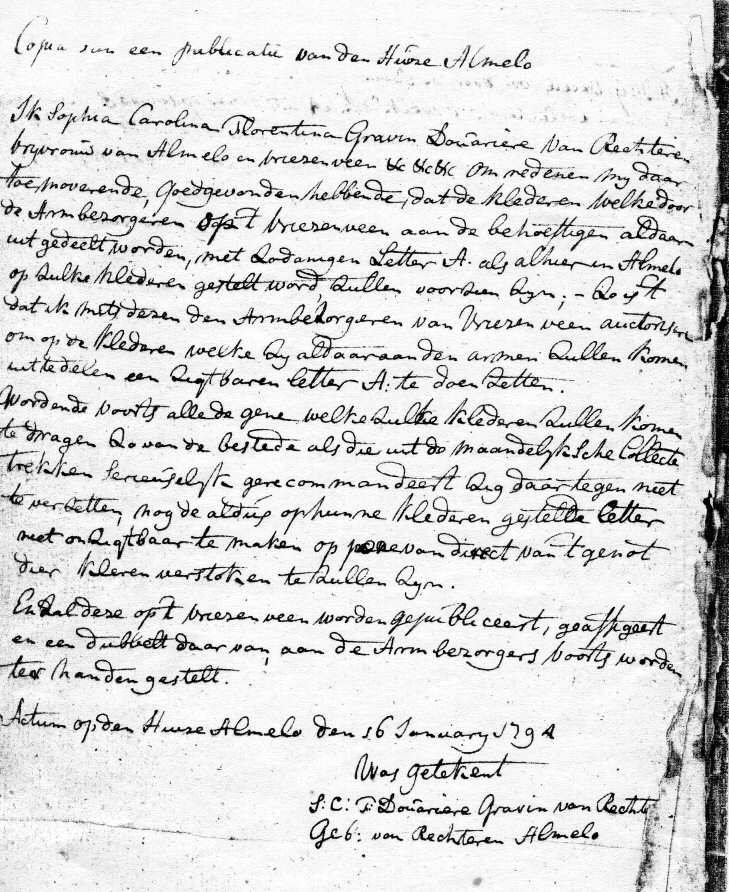 Copia van een publicatie van den Huize Almelo
Ik Sophia Carolina Florentina Gravin Douäriere van Rechteren
vryvrouw van Almelo en vriezenveen &c &c &c om redenen my daar
toe moverende, goedgevonden hebbende, dat de klederen welke door
de Armbezorgeren op't vriezenveen aan de behoeftigen aldaar
uit gedeelt worden, met Zodanigen Letter A. als alhier in Almelo
op Zulke klederen gestelt word, Zullen voorzien Zyn; - Zo is't
dat ik mits dezen den Armbezorgeren van Vriezenveen auctorisere
om op de klederen welke Zy aldaar aan den armen Zullen komen
uit te delen een Zigtbaren letter A: te doen Zetten.
Wordende voorts alle de gene welke Zulke klederen Zullen komen
te dragen Zo van de bestede als die uit de maandelyksche Collecte
trekken serieuselyk gerecommandeert Zig daar tegen niet
te verzetten, nog de aldus op hunne klederen gestelde letter
niet onzigtbaar te maken op pene van direct van 't genot
dier kleren verstoken te Zullen Zyn.
En Zal deze op't vriezenveen worden gepubliceert, geaffigeert
en een dubbelt daar van aan de Armbezorgers voorts worden
ter handen gestelt.
Actum op den Huize Almelo den 16 January 1794
Was getekent
S: C: F: Douäriere Gravin van Recht
Geb: van Rechteren Almelo